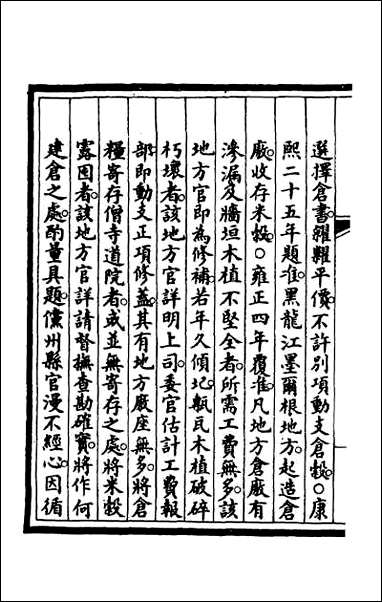 選擇倉書糴糶平價不許別項動支倉穀○康
熙二十五年題准黑龍江墨爾根地方起造倉
廒收存米穀○雍正四年覆准凡地方倉廒有
滲漏及牆垣木植不堅全者所需工費無多該
地方官即為修補若年久傾圮瓶瓦木植破碎
朽壞者該地方官詳明上司委官估計工費報
部即動支正項修蓋其有地方廒座無多將倉
糧寄存僧寺道院者或並無寄存之處將米穀
露囤者該地方官詳請督撫查勘確實將作何
建倉之處酌量具題儻州縣官漫不經心因循